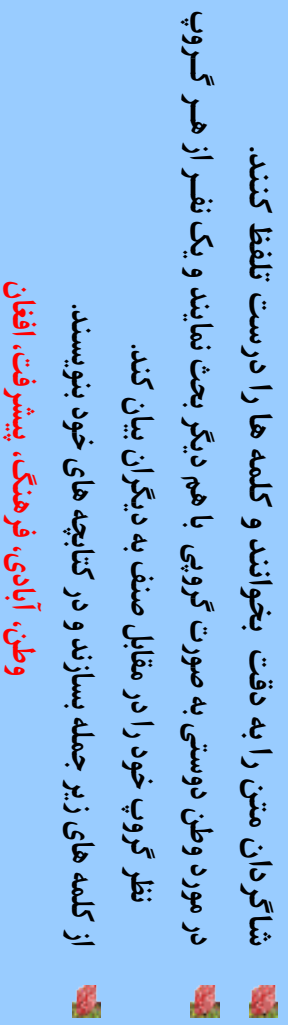 شاگردان متن را به دقت بخوانند و کلمه ها را درست تلفظ کنند.
در مورد وطن دوستی به صورت گروپی با هم دیگر بحث نمایند و یک نفر از هر گروپ
نظر گروپ خود را در مقابل صنف به دیگران بیان کند.
از کلمه های زیر جمله بسازند و در کتابچه های خود بنویسند.
وطن، آبادی، فرهنگ، پیشرفت، افغان